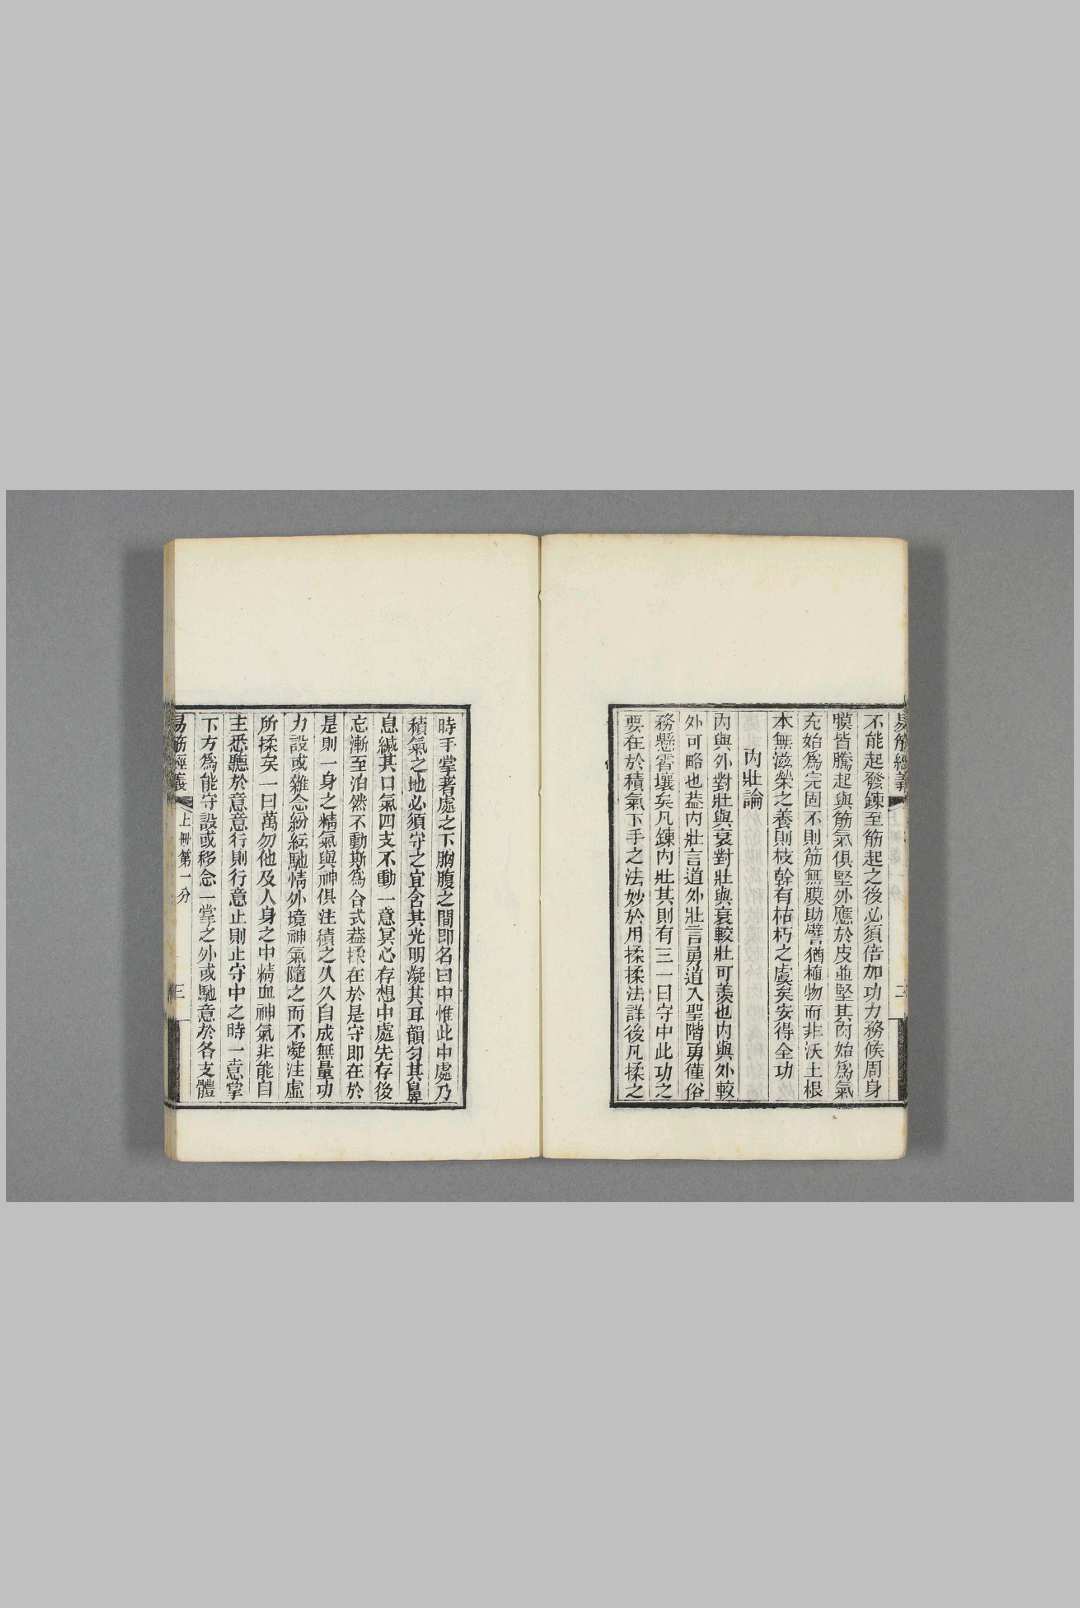 不能起發鍊至筋起之後必須倍加功力務候周身
膜皆騰起與筋氣俱堅外應於皮並堅其肉始爲氣
充始爲完固不則筋無膜助譬猶植物而非沃土根
本無滋榮之養則枝幹有枯朽之虞矣安得全功
內壯論
內與外對壯與衰對壯與衰較壯可羨也內與外較
外可略也蓋內壯言道外壯言勇道入聖階勇僅俗
務懸霄壤矣凡鍊內壯其則有三一曰守中此功之
要在於積氣下手之法妙於用揉揉法詳後凡揉之
易筋經義
上冊第一分
三
時手掌著處之下胸腹之間即名曰中惟此中處乃
積氣之地必須守之宜含其光明凝其耳韻勻其鼻
息緘其口氣四支不動一意冥心存想中處先存後
忘漸至泊然不動斯爲合式蓋揉在於是守即在於
是則一身之精氣與神俱注積之久久自成無量功
力設或雜念紛紜馳情外境神氣隨之而不凝注虛
所揉矣一曰萬勿他及人身之中精血神氣非能自
主悉聽於意意行則行意止則止守中之時一意掌
下方爲能守設或移念一掌之外或馳意於各支體